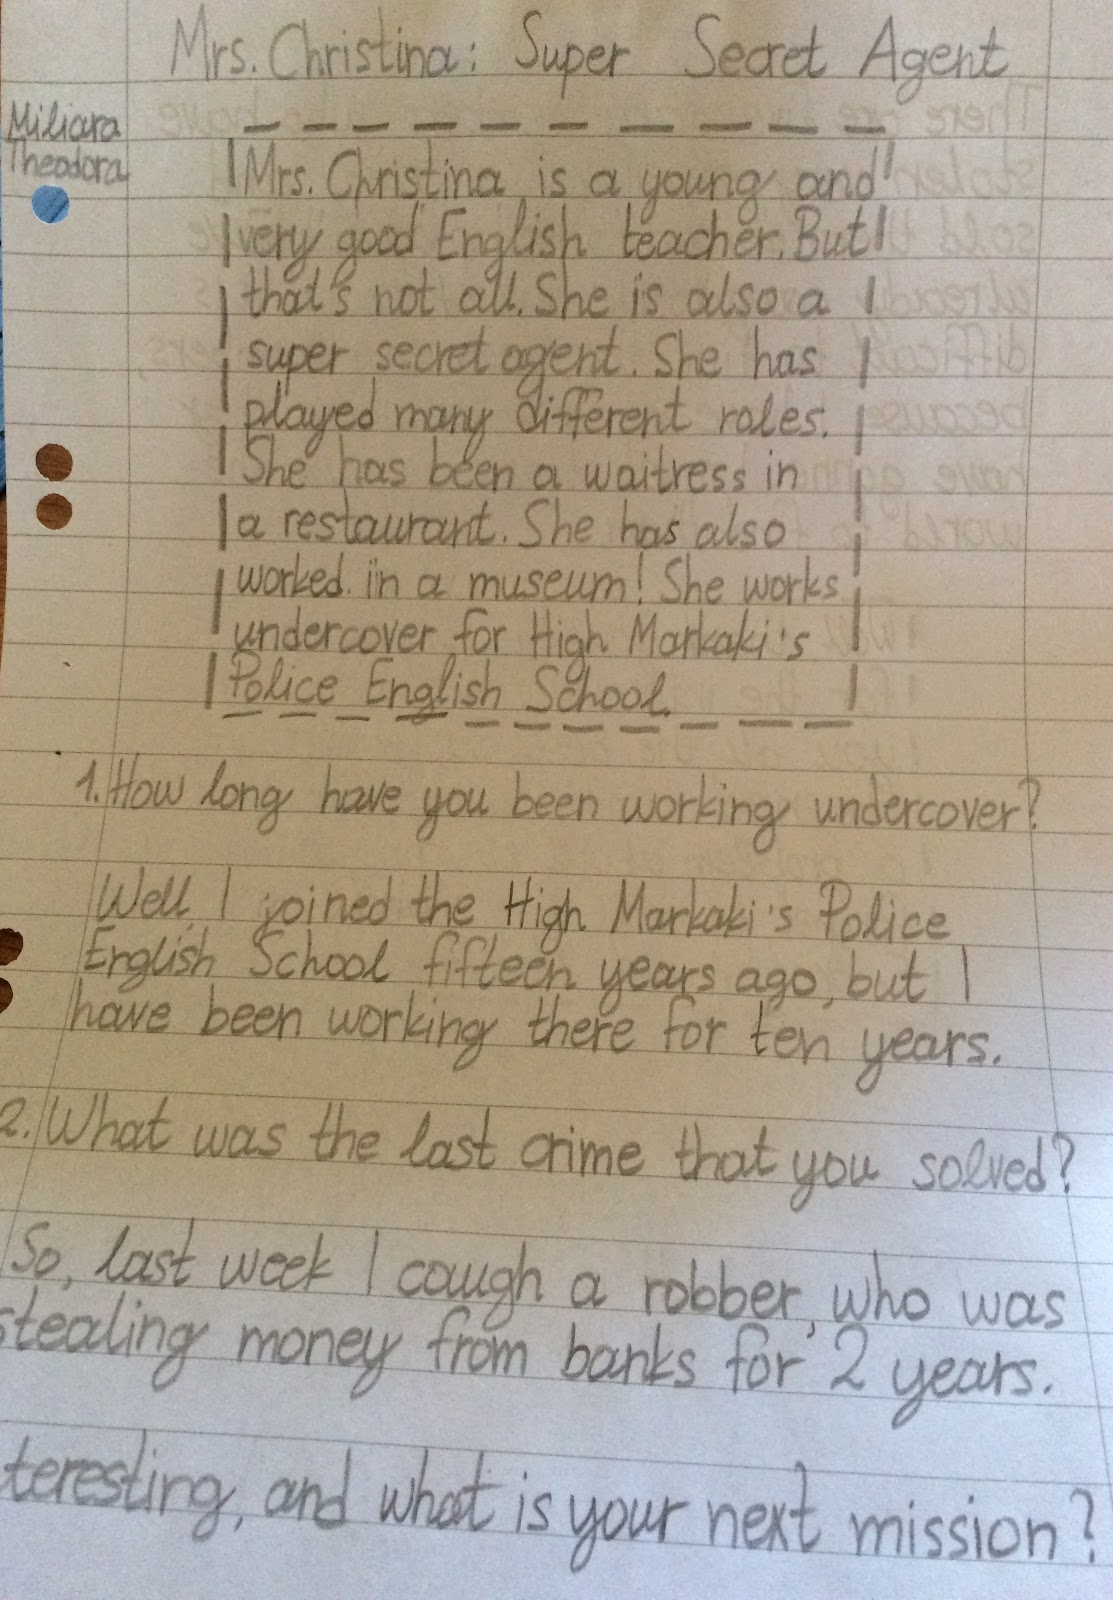 Mrs. Christina: Super Secret Agent
Miliara
Theodora
Mrs. Christina is a young and
very good English teacher. But
that's not all. She is also a
super secret agent. She has
played many different roles.
She has been a waitress in
a restaurant. She has also
worked in a museum! She works
undercover for High Markaki's
Police English School.
1. How long have you been working undercover?
Well, I joined the High Markaki's Police
English School fifteen years ago, but I
have been working there for ten years.
2. What was the last crime that you solved?
So, last week I caugh a robber, who was
stealing money from banks for 2 years.
teresting, and what is your next mission?